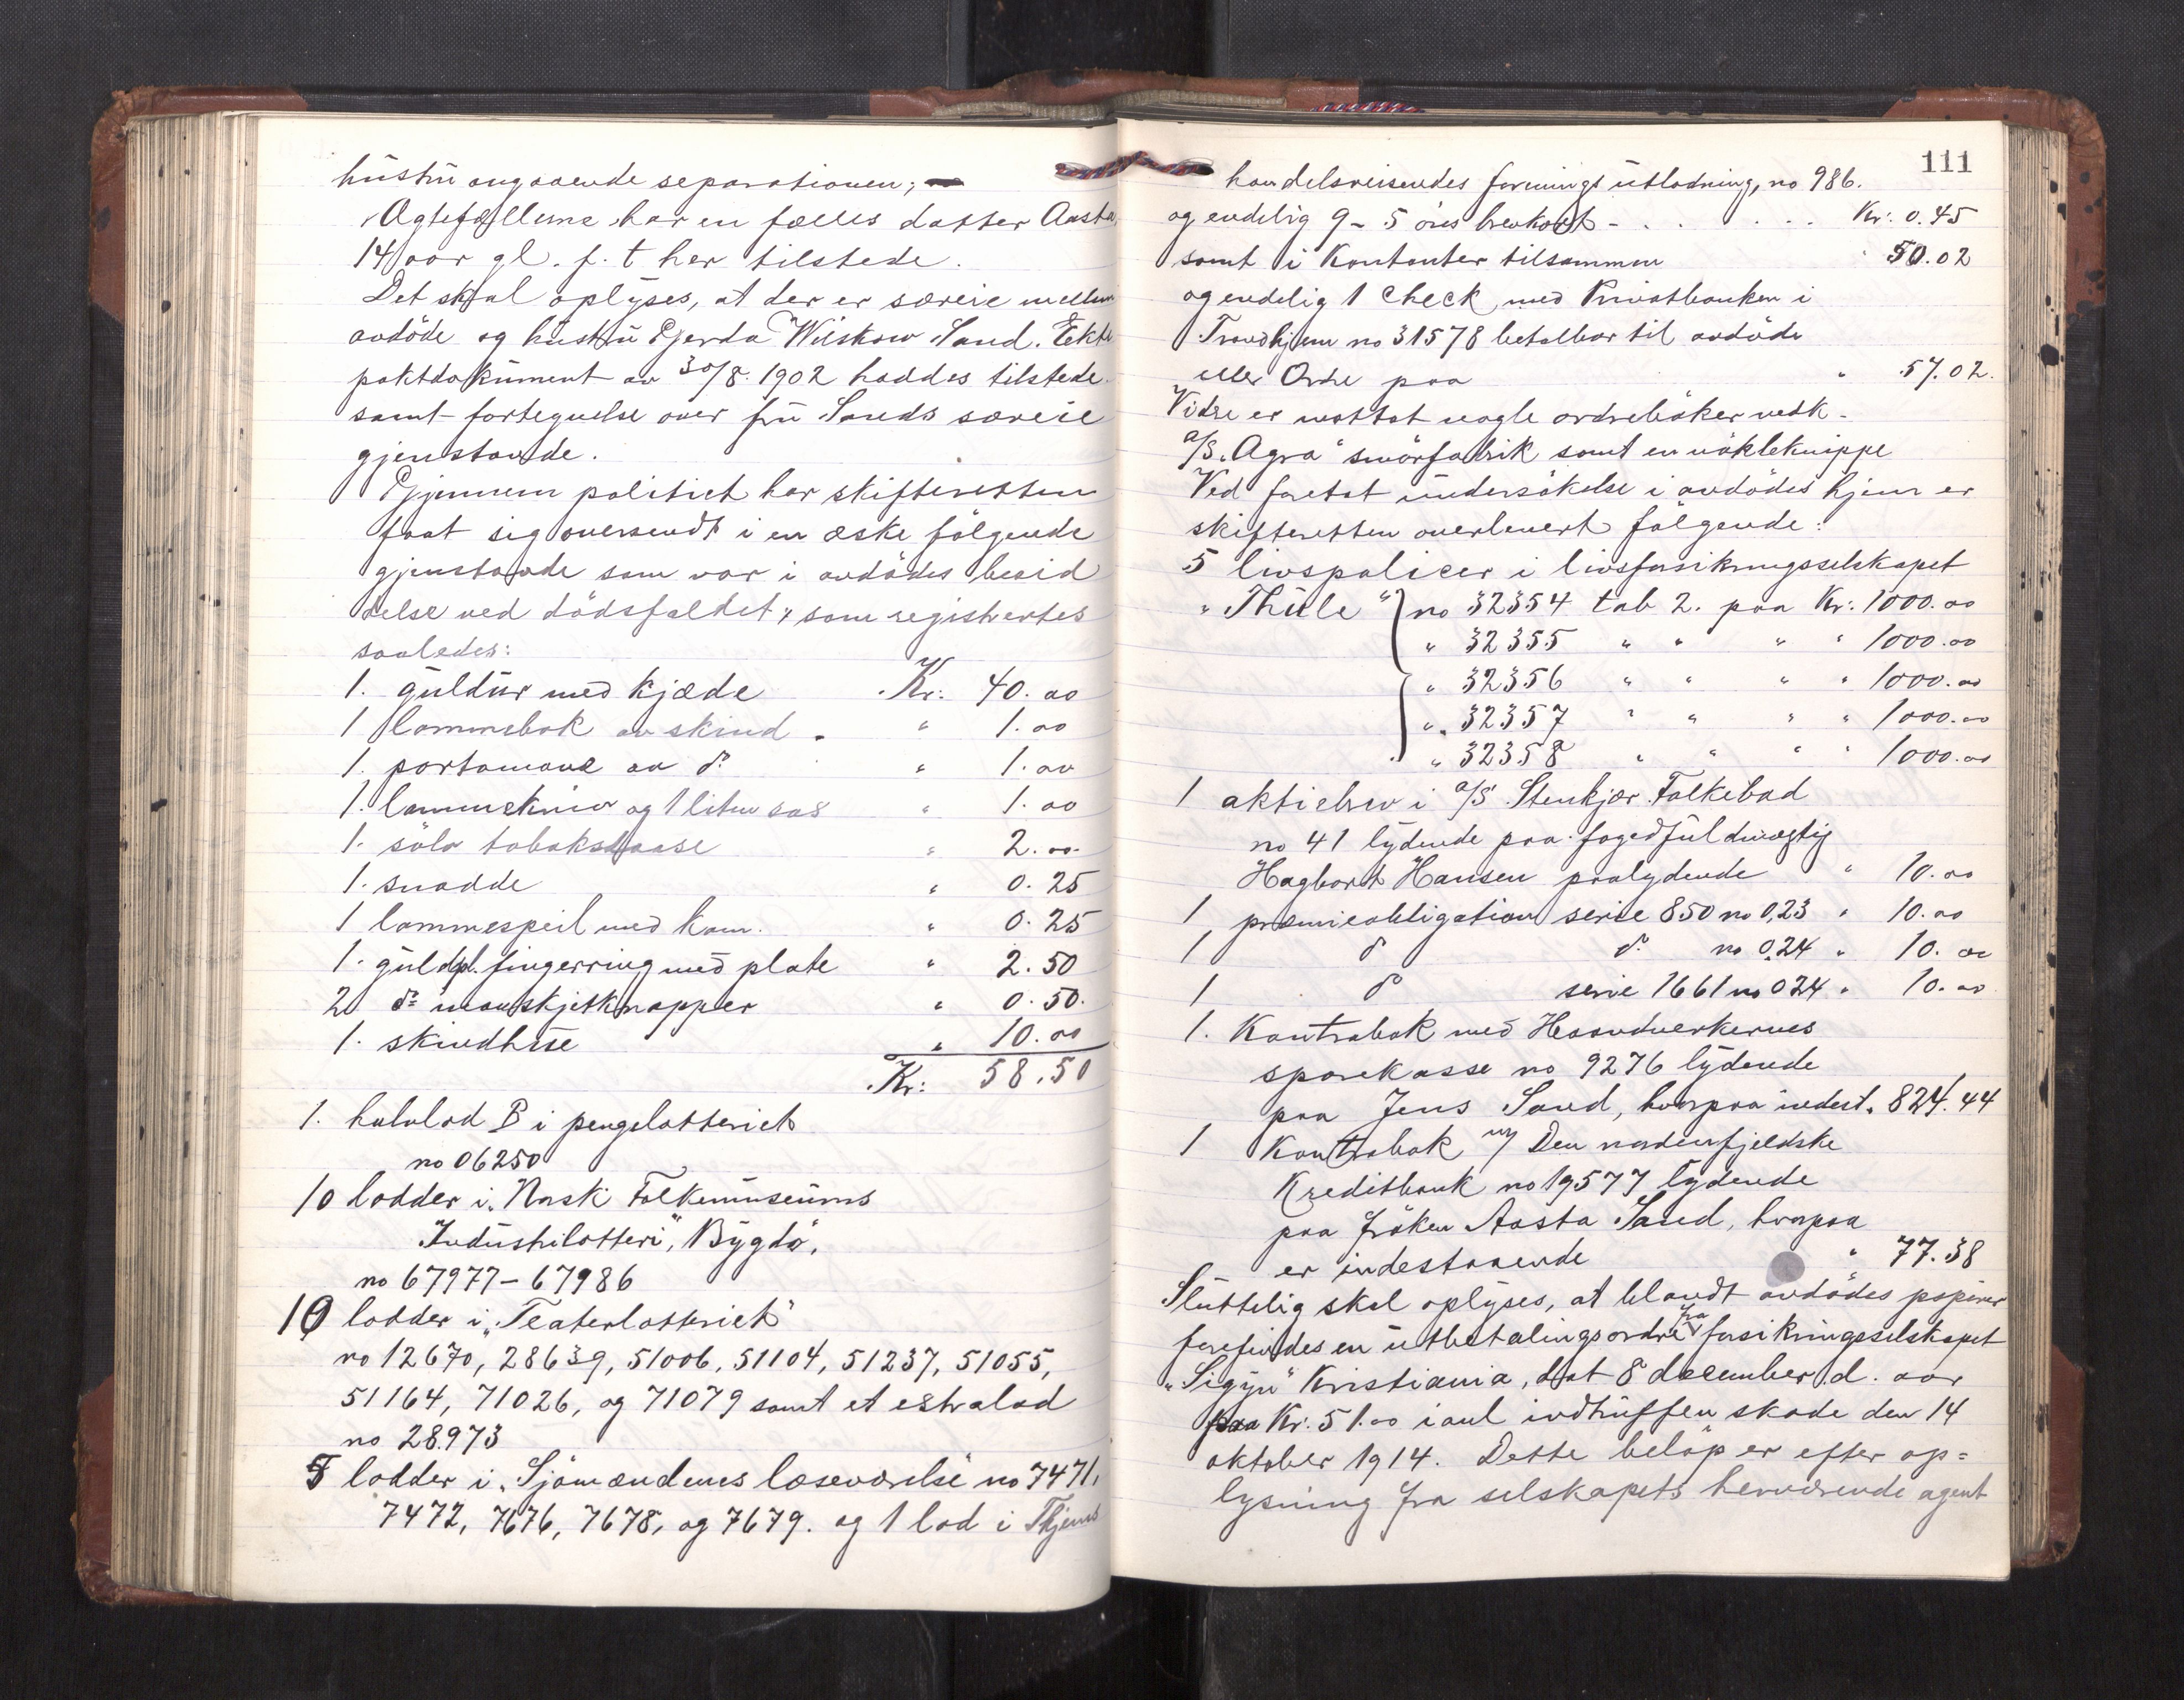 hustru angaaende separationen;
Ægtefællerne har en fælles datter Aasta
14 aar gl. f. t her tilstede.
Det skal oplyses, at der er særeie mellem
avdöde og hustru Gjerda Wilskow Sand. Ekte
paktdokument av 30/8. 1902 haddes tilstede
samt fortegnelse over fru Sands særeie
gjenstande.
Gjennem politiet har skifteretten
faat sig oversendt i en æske fölgende
gjenstande som var i avdödes besid
delse ved dödsfaldet, som registrertes
saaledes:
1. guldur med kjæde Kr: 40.00
1 lommebok av skind " 1.00
1. portomone av do " 1.00
1. lommekniv og 1 liten sas " 1.00
1. sölv tobaksdaase " 2.00
1. snadde " 0.25
1 lommespeil med kam. " 0.25
1. guldpl. fingerring med plate " 2.50
2 do manskjetknapper " 0.50.
1. skindhue " 10.00
Kr: 58.50
1. halvlod B i pengelotteriet
no 06250
10 lodder i "Norsk Folkemuseums
Industrilotteri", Bygdö,
no 67977-67986
10 lodder i "Teaterlotteriet"
no 12670, 28639, 51006, 51104, 51237, 51055,
51164, 71026, og 71079 samt et estralod
no 28973
5 lodder i "Sjömændenes læseværelse" no 7471,
7472, 7676, 7678, og 7679. og 1 lod i Thjems
111
handelsreisendes forenings utlodning, no 986.
og endelig 9 - 5 öres brevkort - Kr: 0.45
samt i Kontanter tilsammen " 50.02
og endelig 1 check med Privatbanken i
Trondhjem no 31578 betalbar til avdöde
eller Ordre paa " 57.02.
Vidre er mottat nogle ordreböker vedk.
a/s "Agra" smörfabrik samt en nökleknippe
Ved foretat undersökelse i avdödes hjem er
skifteretten overlevert fölgende:
5 livspolicer i livsforsikringsselskapet
"Thule" no 32354 tab 2. paa Kr: 1000.00
" 32355 " " " " 1000.00
" 32356 " " " " 1000.00
" 32357 " " " " 1000.00
" 32358 " " " " 1000.00
1 aktiebrev i a/s Stenkjær Folkebad
no 41 lydende paa fogedfuldmægtig
Hagbart Hansen paalydende " 10.00
1 præmieobligation serie 850 no 023 " 10.00
1 do do no 024 " 10.00
1 do serie 1661 no 024 " 10.00
1. Kontrabok med Haandverkernes
sparekasse no 9276 lydende
paa Jens Sand, hvorpaa indest. 824.44
1 Kontrabok m/ Den nordenfjeldske
Kreditbank no 19577 lydende
paa fröken Aasta Sand, hvorpaa
er indestaaende " 77.38
Sluttelig skal oplyses, at blandt avdödes papirer
forefindes en utbetalingsordre fra forsikringsselskapet
"Sigyn" Kristiania, dat 8 december d. aar
paa Kr. 51.00 i anl indtruffen skade den 14
oktober 1914. Dette belöp er efter op=
lysning fra selskapets herværende agent